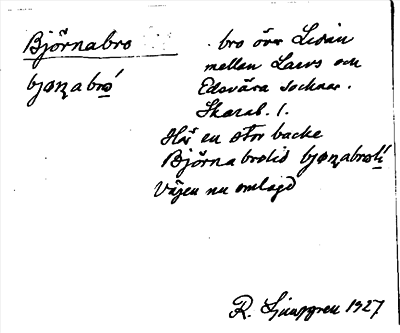 Björnabro
bjønabro´
bro över Lidån
mellan Larvs och
Edsvära socknar.
Skarab. l.
Här en stor backe
Björnabrolid bjønabroli´
Vägen nu omlagd
R. Ljunggren 1927